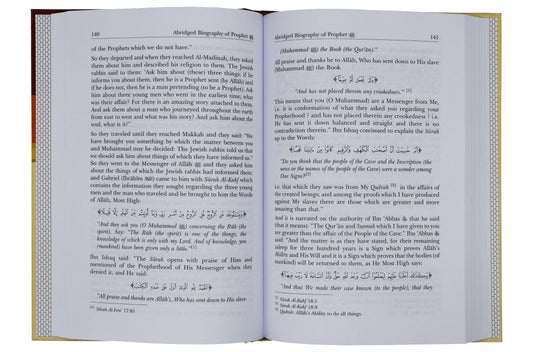 140 Abridged Biography of Prophet ﷺ
of the Prophets which we do not have."
So they departed and when they reached Al-Madinah, they asked
about him from them and described his religion to them. The Jewish
rabbis said to them: 'Ask him about (these) three things; if he
informs you about them, then he is a Prophet sent (by Allâh) and
if he does not, then he is a man pretending (to be a Prophet). Ask him
about three young men who went in the earliest time; what
was their affair? For there is an amazing story attached to them.
And ask them about a man who journeyed throughout the earth
from east to west and what was his story? And ask him about the
soul, what is it?"
So they traveled until they reached Makkah and they said: "We
have brought you something by which the matter between you
and Muhammad may be decided: The Jewish rabbis told us that
we should ask him about things of which they have informed us."
So they went to the Messenger of Allâh ﷺ and they asked him
about the things of which the Jewish rabbis had informed them;
and Gabriel (Ibrâhîm) came to him with Sûrah Al-Kahf which
contains the information they sought regarding the three young
men and the man who traveled and he brought to him the Words
of Allâh, Most High:
﴿وَيَسْأَلُونَكَ عَنِ الرُّوحِ قُلِ الرُّوحُ مِنْ أَمْرِ رَبِّي وَمَا أُوتِيتُمْ مِنَ الْعِلْمِ إِلَّا قَلِيلًا﴾
"And they ask you (O Muhammad ﷺ) concerning the Rûh (the
spirit). Say: "The Rûh (the spirit) is one of the things, the
knowledge of which is only with my Lord. And of knowledge, you
(mankind) have been given only a little."(1)
Ibn Ishaq said: "The Sûrah opens with praise of Him and
mentioned of the Prophethood of His Messenger when they
denied it; and He said:
﴿الْحَمْدُ لِلَّهِ الَّذِي أَنْزَلَ عَلَى عَبْدِهِ الْكِتَابَ﴾
"All praise and thanks are Allâh's, Who has sent down to His slave
(1) Sûrah Al-Isra' 17:85
Abridged Biography of Prophet ﷺ 141
(Muhammad ﷺ) the Book (the Qur'ân)."
All praise and thanks be to Allâh, Who has sent down to His slave
(Muhammad ﷺ) the Book
﴿وَلَمْ يَجْعَلْ لَهُ عِوَجًا﴾
"And has not placed therein any crookedness." (1)
This means that you (O Muhammad) are a Messenger from Me,
i.e. it is conformation of what they asked you regarding your
Prophethood ? and has not placed therein any crookedness – i.e.
He has sent it down balanced and straight and there is no
contradiction therein." Ibn Ishaq continued to explain the Sûrah
up to the Words:
﴿أَمْ حَسِبْتَ أَنَّ أَصْحَابَ الْكَهْفِ وَالرَّقِيمِ كَانُوا مِنْ آيَاتِنَا عَجَبًا﴾
"Do you think that the people of the Cave and the Inscription (the
news or the names of the people of the Cave) were a wonder among
Our Signs?(2)
i.e. that which they saw was from My Qudrah (3) in the affairs of
the created beings; and among the proofs which I have produced
against My slaves there are those which are greater and more
amazing than that."
And it is narrated on the authority of Ibn 'Abbas that he said
(that it means): "The Qur'ân and Sunnah which I have given to you
are greater than the affair of the People of the Cave." Ibn 'Abbas
said: "And the matter is as they have stated, for their remaining
asleep for three hundred years is a Sign which proves Allâh's
Ability and His Will and it is a Sign which proves that the bodies (of
mankind) will be returned to them, as He Most High says:
﴿وَكَذَلِكَ أَعْثَرْنَا عَلَيْهِمْ لِيَعْلَمُوا أَنَّ وَعْدَ اللَّهِ حَقٌّ وَأَنَّ السَّاعَةَ لَا رَيْبَ فِيهَا﴾
"And thus We made their case known (to the people), that they
(1) Sûrah Al-Kahf 18:1
(2) Sûrah Al-Kahf 18:9
(3) Qudrah: Allâh's Ability to do all things.